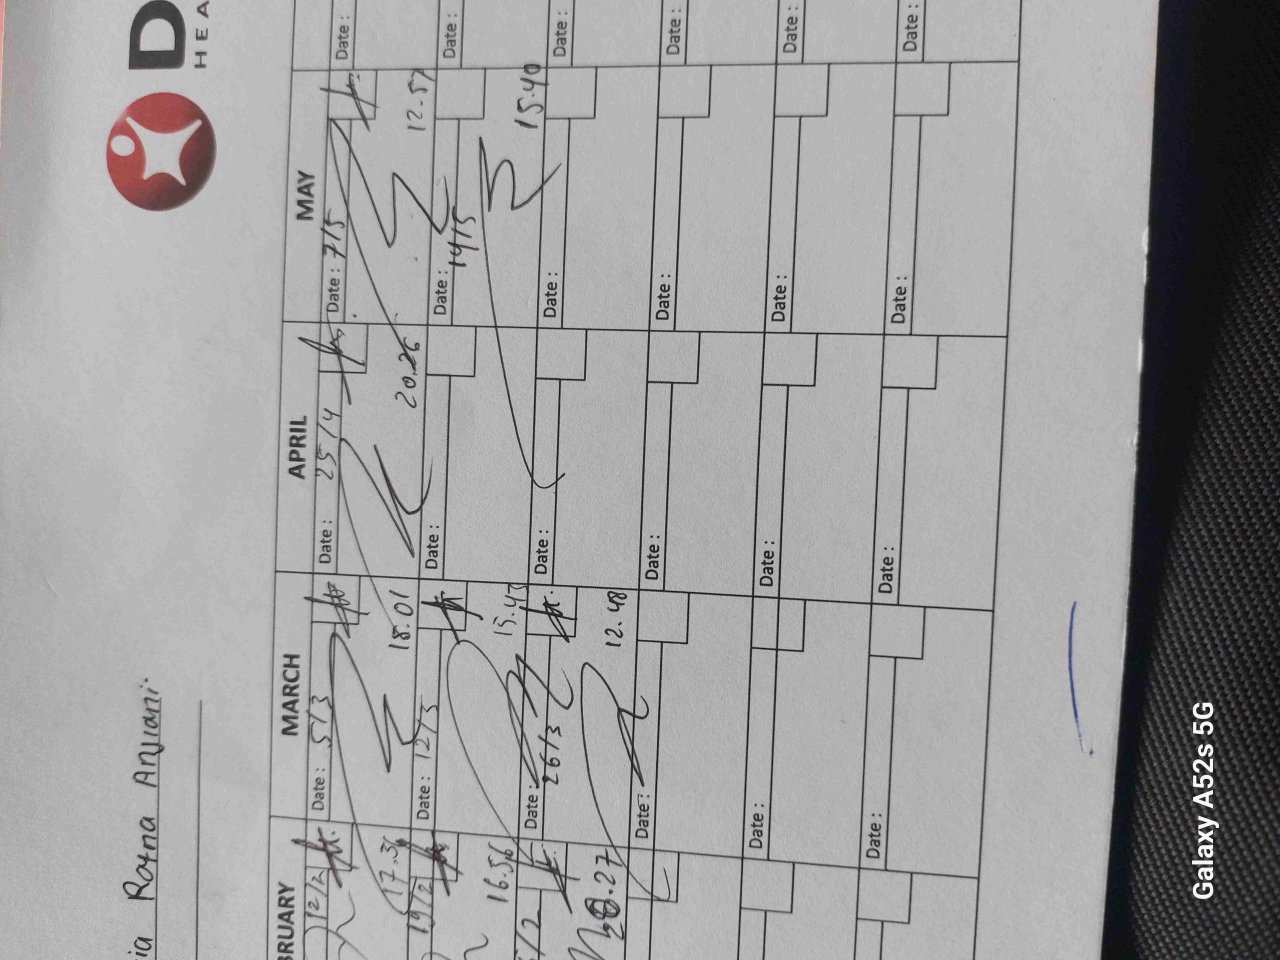 D
HEA
ia Rayna Anjani
BRUARY
MARCH
APRIL
MAY
12/2
Date : 5/3
Date : 25/4
Date : 7/5
Date :
17.36
18.01
20.26
12.57
19/2
Date : 12/3
Date :
Date : 14/5
Date :
16.56
15.45
15.40
5/2
Date : 26/3
Date :
Date :
Date :
20.27
12.48
Date :
Date :
Date :
Date :
Date :
Date :
Date :
Date :
Date :
Date :
Date :
Date :
Galaxy A52s 5G